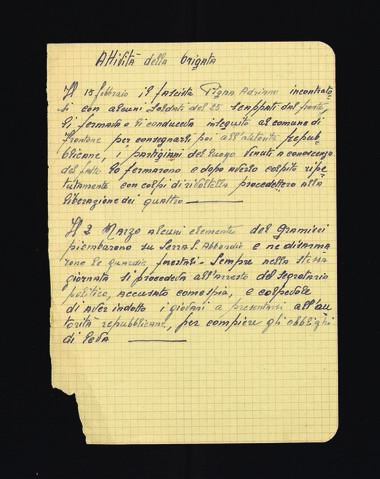 Attività della brigata
Il 18 febbraio il fascista Pigna Adriano incontrato
si con alcuni soldati del 25. scappati dal fronte,
li fermato e li conduceva in seguito al comune di
Frontone per consegnarli poi all'autorità repub-
blicane, i partigiani del luogo venuti a conoscenza
del fatto lo fermarono e dopo averlo colpito ripe-
tutamente con colpi di rivoltella procedettero alla
liberazione dei quattro
Il 2 Marzo alcuni elementi del Gramsci
piombarono su Serra S. Abbondio e ne disarma
rono le guardie fasciste. Sempre nella stessa
giornata si procedeva all'arresto del segretario
politico, accusato come spia, e colpevole
di aver indotto i giovani a presentarsi all'au
torità repubblicane, per compiere gli obblighi
di leva